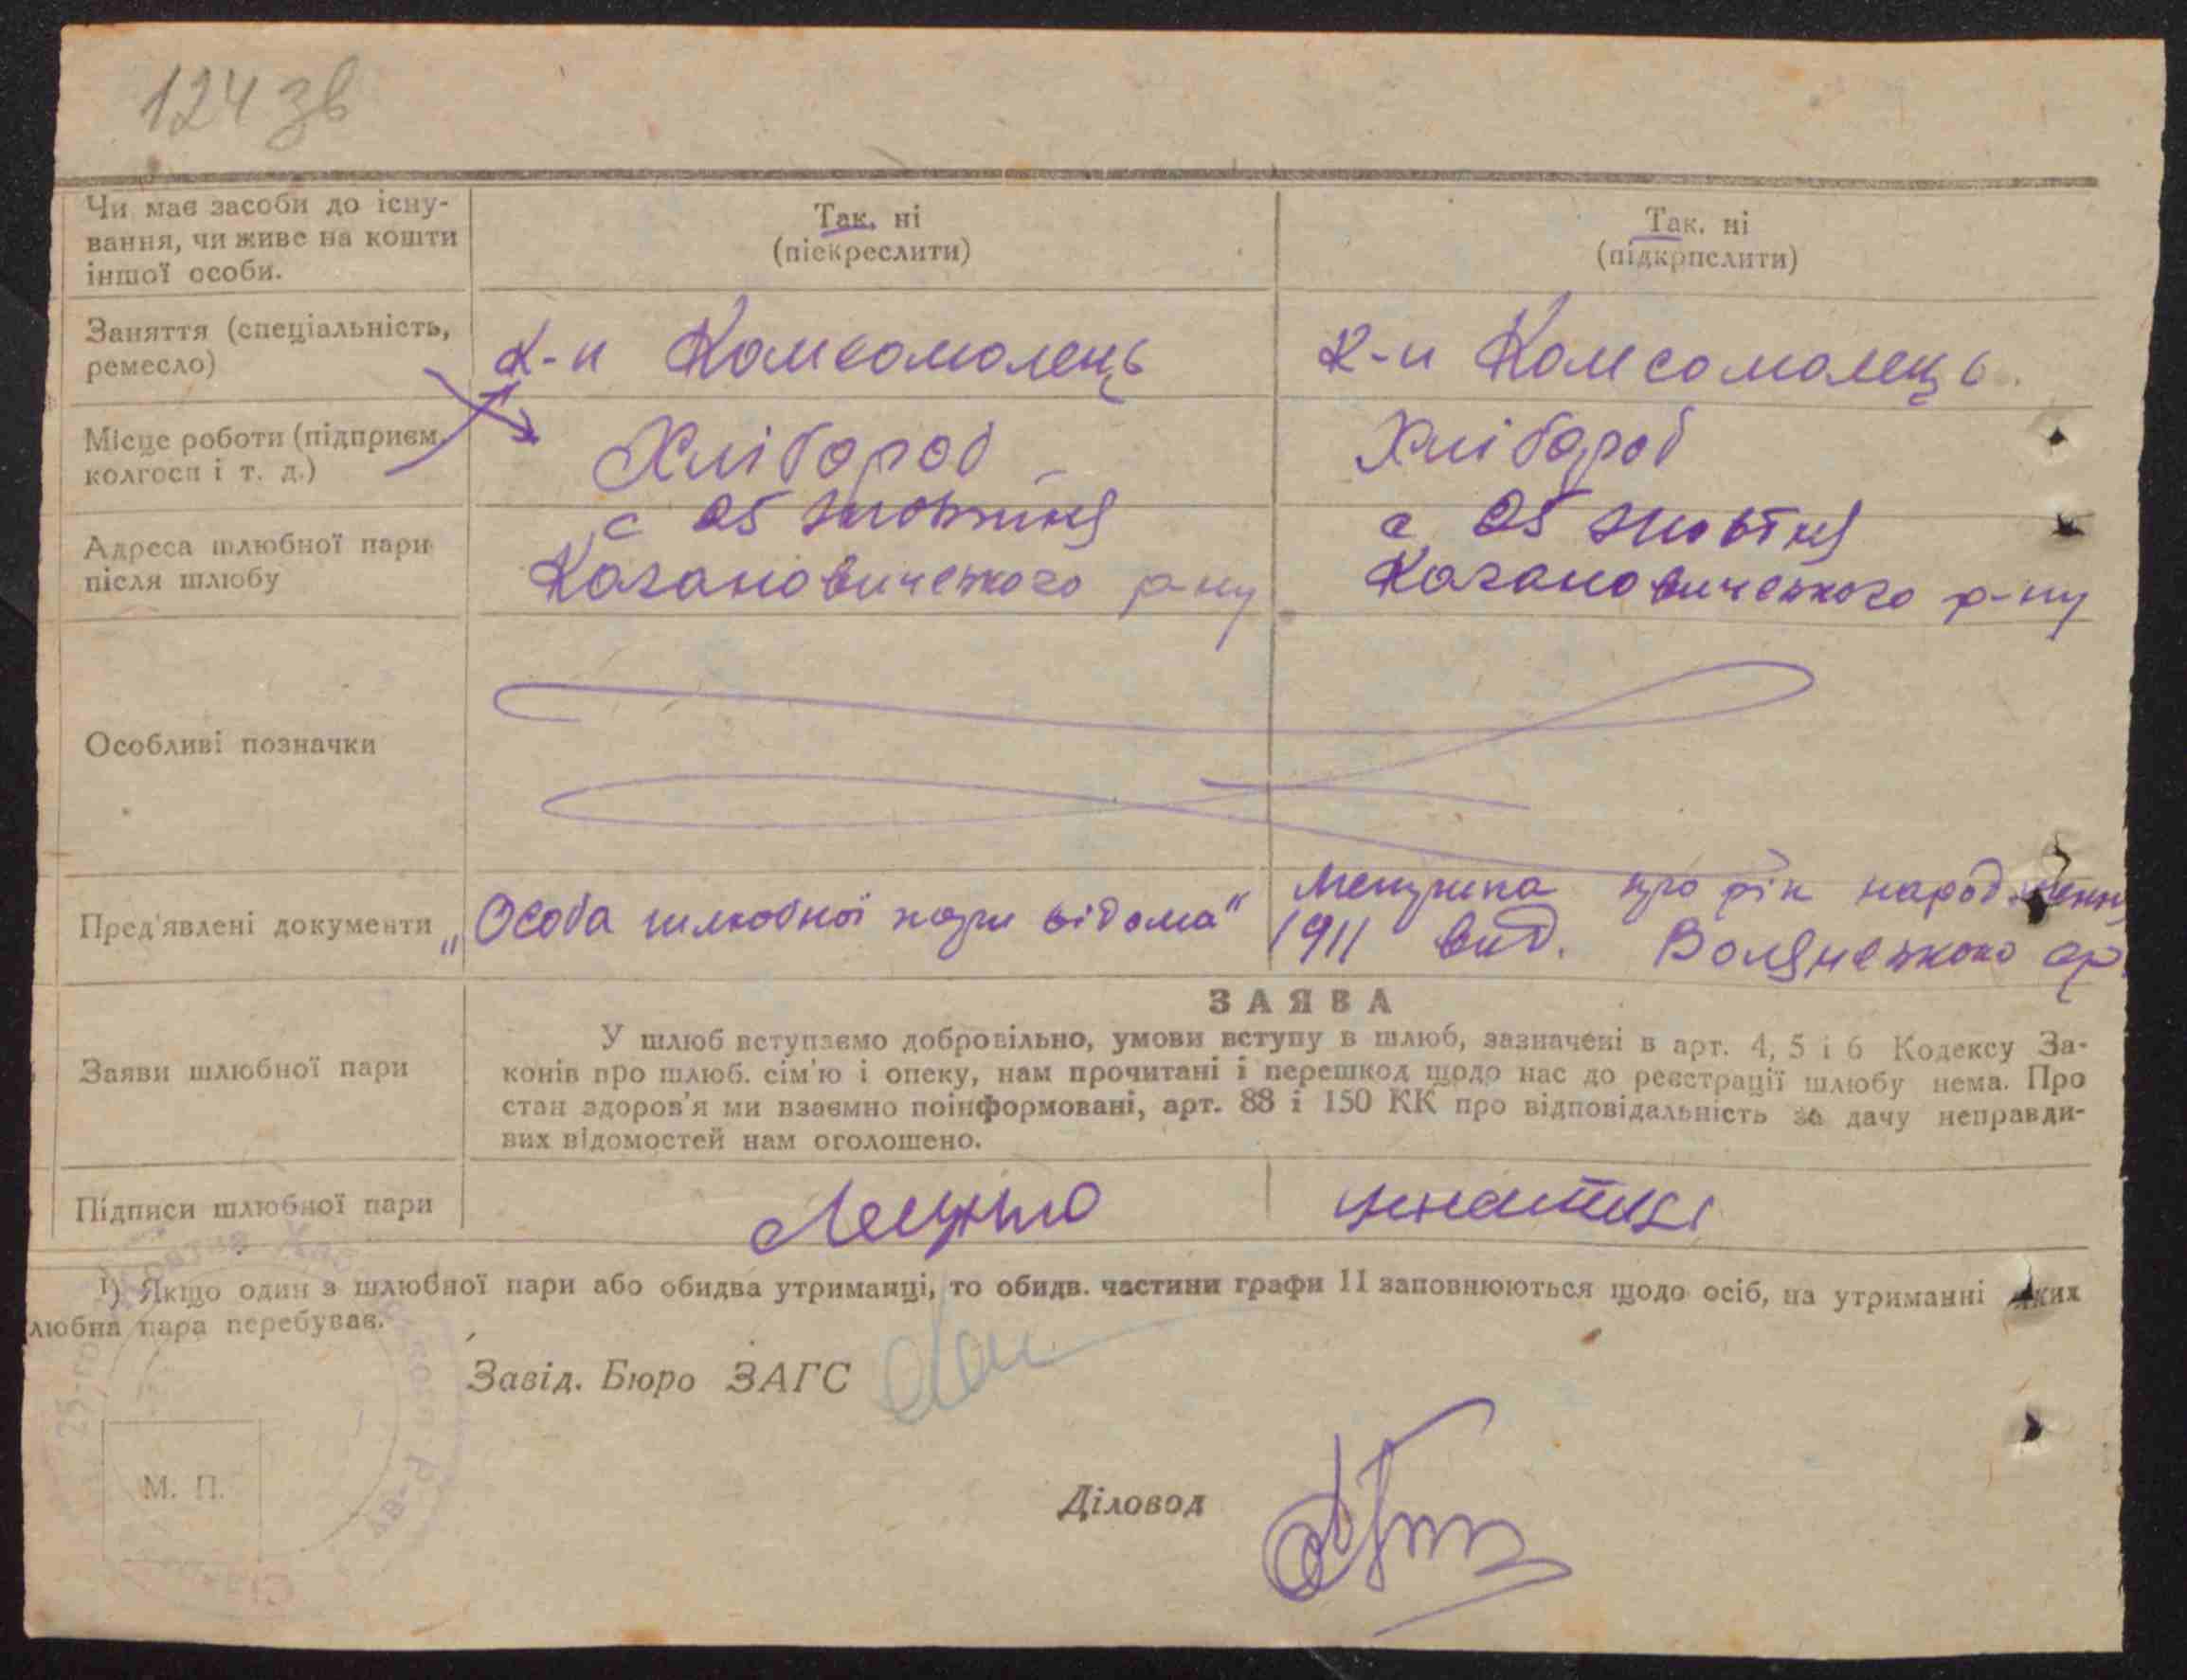 124 зв
Чи має засоби до існу-
вання, чи живе на кошти
іншої особи.
Так, ні
(піекреслити)
Так, ні
(підкрпслити)
Заняття (спеціальність,
ремесло)
к-п Комсомолець
к-п Комсомолець.
Місце роботи (підприєм.
колгосп і т. д.)
Хлібороб
Хлібороб
Адреса шлюбної пари
після шлюбу
с 25 Жовтня
Кагановичського р-ну
с 25 Жовтня
Кагановичського р-ну
Особливі позначки
Пред'явлені документи
„Особа шлюбної пари відома"
Метрика про рік народження
1911 вид.
Заяви шлюбної пари
ЗАЯВА
У шлюб вступаємо добровільно, умови вступу в шлюб, зазначені в арт. 4, 5 і 6 Кодексу За-
конів про шлюб. сім'ю і опеку, нам прочитані і перешкод щодо нас до реєстрації шлюбу нема. Про
стан здоров'я ми взаємно поінформовані, арт. 88 і 150 КК про відповідальність за дачу неправди-
вих відомостей нам оголошено.
Підписи шлюбної пари
1) Якщо один з шлюбної пари або обидва утриманці, то обидв. частини графи 11 заповнюються щодо осіб, на утриманні яких
любна пара перебуває.
Завід. Бюро ЗАГС
М. П.
Діловод